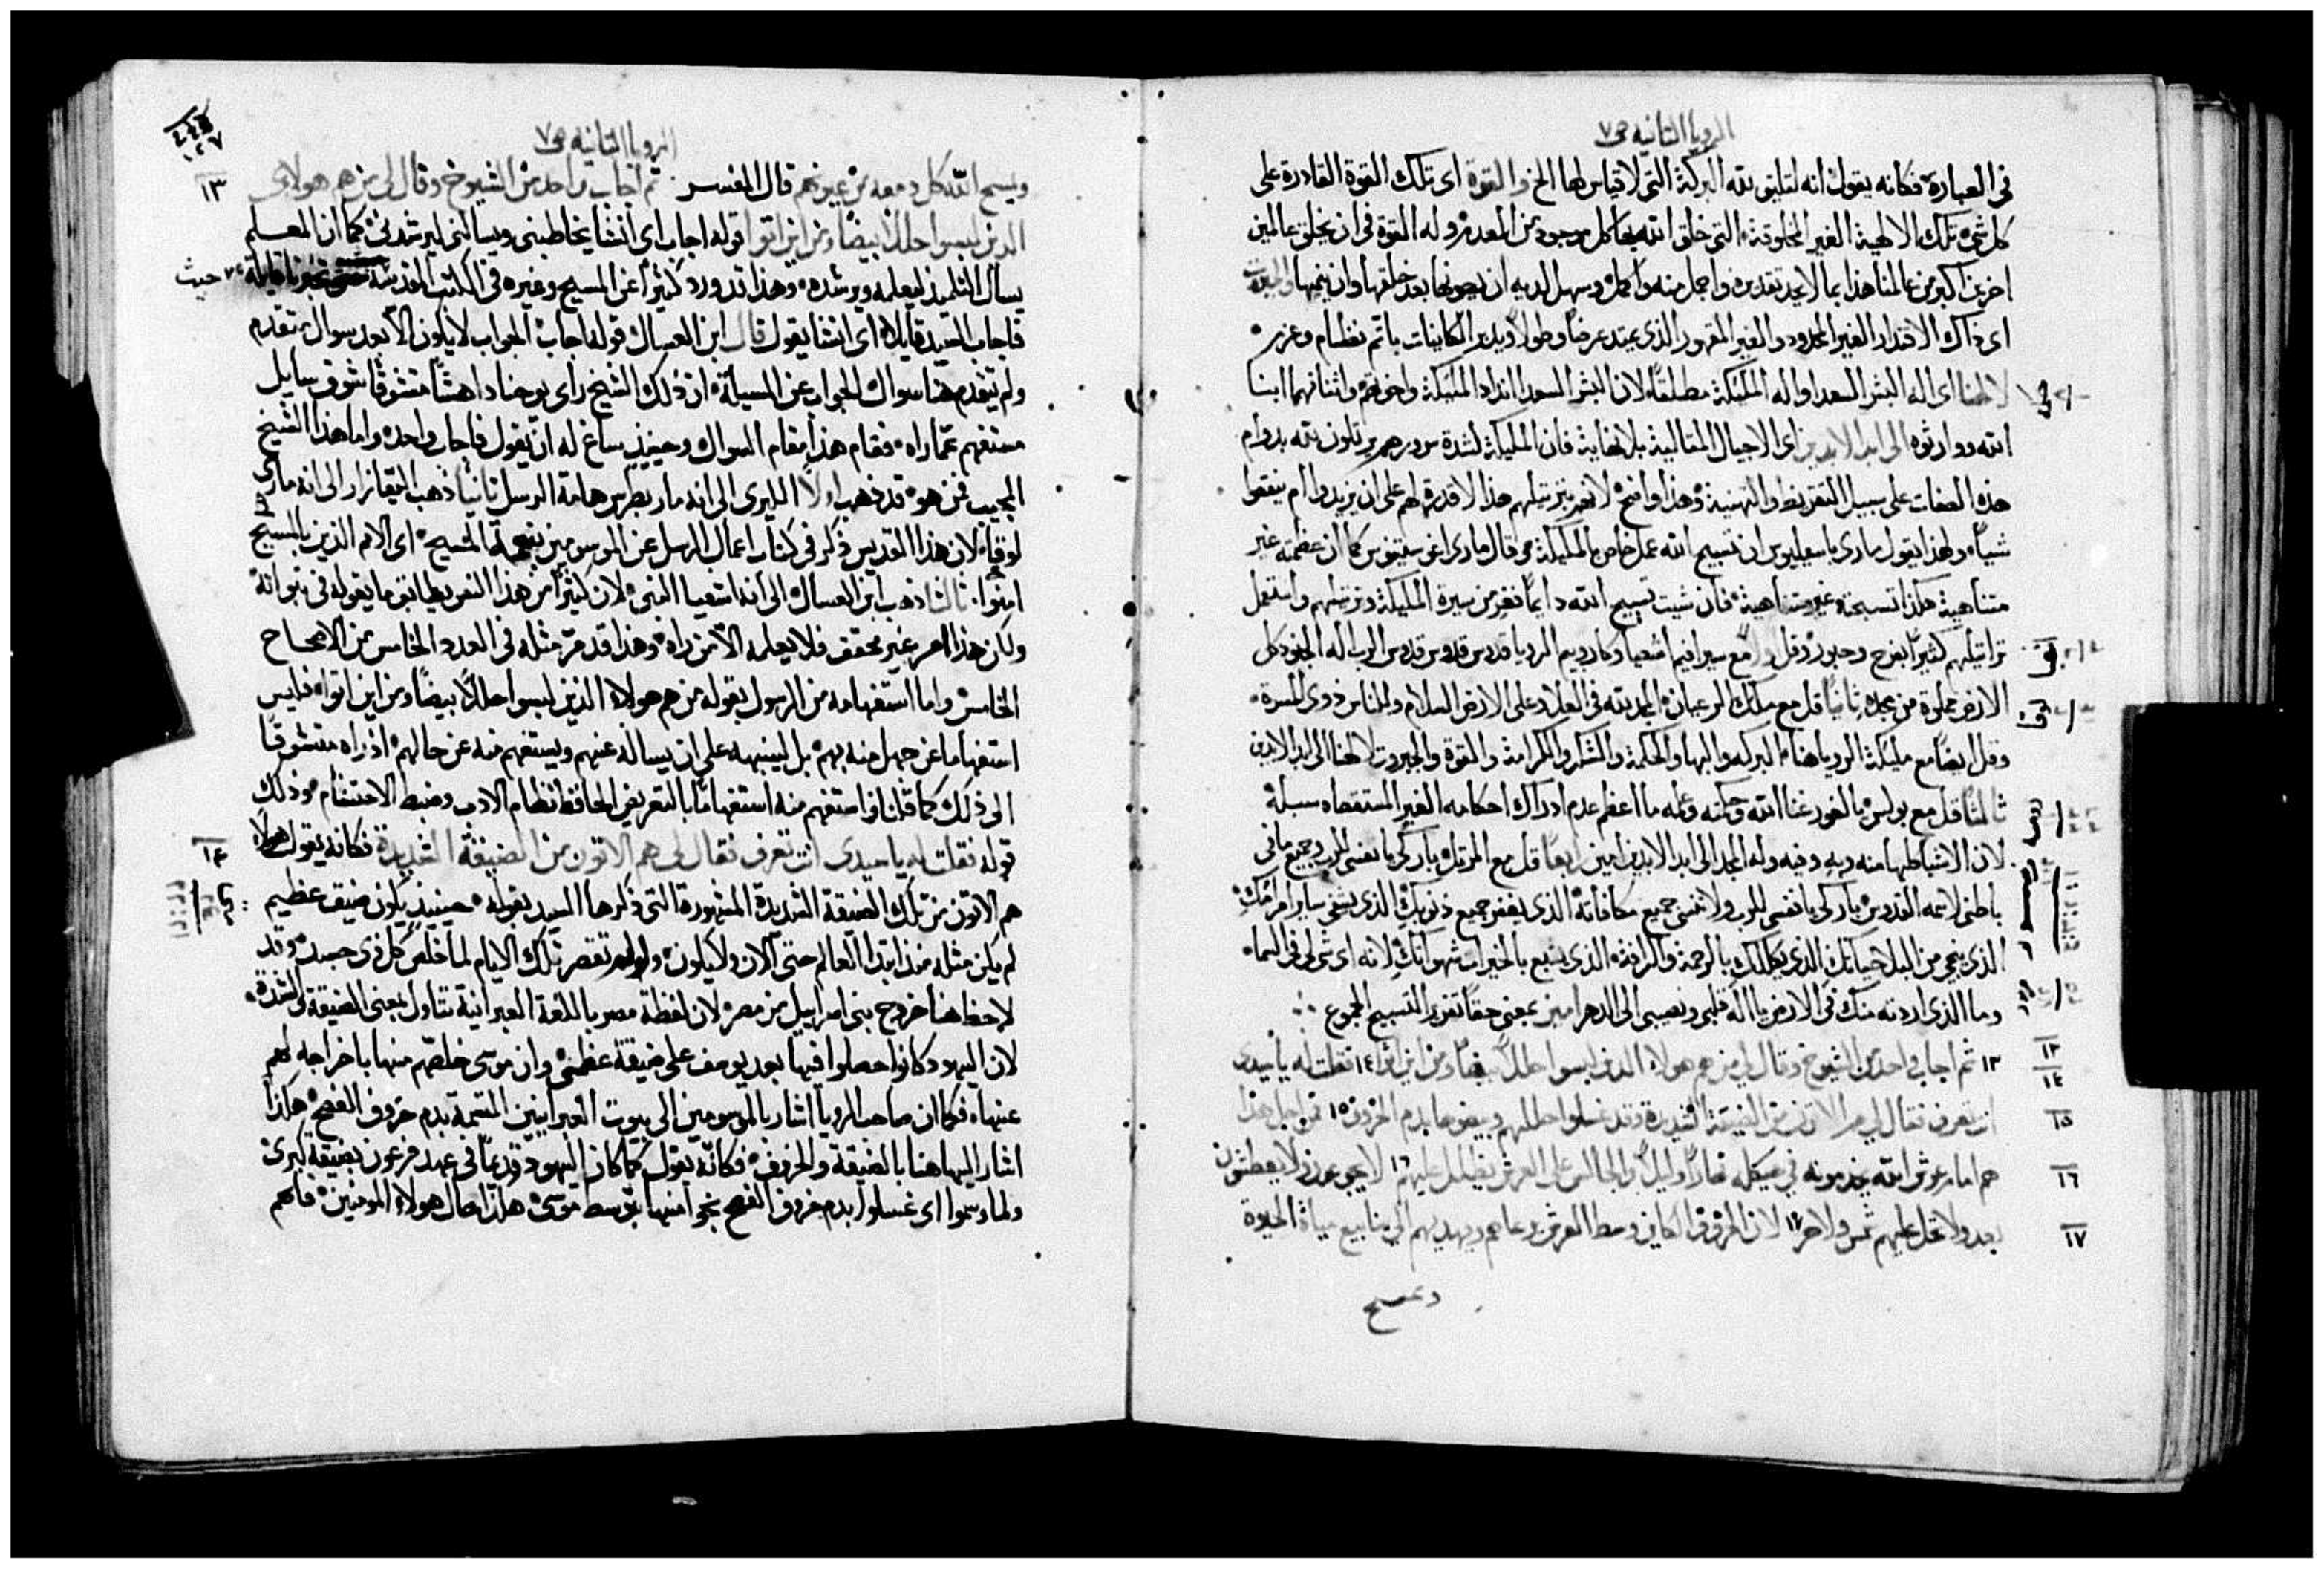 الرويا الثانيه ص٧
في العبارة فكانه يقول انه لتليق بالله البركة التي لا قياس لها الخ والقوة اي تلك القوة القادرة على
كل شي تلك الالهية الغير المخلوقة التي خلق الله بها كل موجود من العدم وله القوة في ان يخلق عالمين
اخرين اكبر من عالمنا هذا بما لا يحد تقديره واجمل منه واكمل وسهل لديه ان يصونها بعد خلقها وان ينميها
اي ذاك الاقتدار الغير المحدود والغير المقهور الذي يمتد عرضا وطولا ويدبر الكاينات باتم نظام وعزير
لالهنا اي اله البشر السعدا واله المليكة مطلقا لان البشر السعدا انداد المليكة واخوتهم واثنانهما ابنا
الله ووارثوه الى ابد الابدين اي الاجيال المتتالية بلا نهاية فان المليكة لشدة سرورهم يرتلون لله بدوام
هذه الصفات على سبيل التقريظ والتهنية وهذا واضح لانهم بترتيلهم هذا لا قدرة لهم على ان يزيدوا ام ينقصوا
شيا ولهذا يقول ماري باسيليوس ان تسبيح الله عمل خاص بالمليكة وقال ماري اغوستينوس كما ان عظمته غير
متناهية هكذا تسبحته غير متناهية فان شيت تسبيح الله دايما فغر من سيرة المليكة وترتيلهم واستعمل
تراتيلهم كثيرا بفرح وحبور وقل اولا مع سيرافيم اشعيا وكاروبيم الرويا قدوس قدوس قدوس الرب اله الجنود كل
الارض مملوة من مجده ثانيا قل مع مليكة الرعيان المجد لله في العلا وعلى الارض السلام وللناس ذوي المسرة
وقل ايضا مع مليكة الرويا هنا البركة والبها والحكمة والشكر والكرامة والقوة والجبروت لالهنا الى ابد الابدين
ثالثا قل مع بولس يا لغور غنا الله وحكمته وعلمه ما اعظم عدم ادراك احكامه الغير المستقصاه سبله
لان الاشيا كلها منه وبه وفيه وله المجد الى ابد الابدين امين رابعا قل مع المرتل باركي يا نفسي للرب وجميع ما في
باطني لاسمه القدوس باركي يا نفسي للرب ولا تنسي جميع مكافاته الذي يغفر جميع ذنوبك الذي يشفي ساير امراضك
الذي ينجي من البلا حياتك الذي يكللك بالرحمة والرافة الذي يشبع بالخيرات شهواتك لانه اي شي لي في السما
وما الذي اردته منك في الارض يا اله قلبي ونصيبي الى الدهر امين بمعنى حقا تقرر التسبيح المجموع
١٣ ثم اجاب واحد من الشيوخ وقال لي من هم هولاء الذين لبسوا حللا بيضا ومن اين اتوا ١٤ فقلت له يا سيدي
انت تعرف فقال لي هم الاتون من الضيقة الشديدة وقد غسلوا حللهم وبيضوها بدم الخروف ١٥ فمن اجل هذا
هم امام عرش الله يخدمونه في هيكله نهارا وليلا والجالس على العرش يظلل عليهم ١٦ لا يجوعون ولا يعطشون
بعد ولا تحل عليهم شمس ولا حر ١٧ لان الخروف الكاين وسط العرش يرعاهم ويهديهم الى ينابيع مياة الحيوة
ويمسح
١٣
١٤
١٥
١٦
١٧
الرويا الثانيه ص٧
١٢٧
ويمسح الله كل دمعه من عيونهم قال المفسر ثم اجاب واحد من الشيوخ وقال لي من هم هولاي
الذين لبسوا حللا بيضا ومن اين اتوا قوله اجاب اي انشا يخاطبني ويسالني ليرشدني كما ان المعلم
يسال التلميذ ليعلمه ويرشده وهذا قد ورد كثيرا عن المسيح وغيره في الكتب المقدسة حيث
فاجاب السيد قايلا اي انشا يقول قال ابن العسال قوله اجاب الجواب لا يكون الا بعد سوال متقدم
ولم يتقدم هنا سوال الجواب عن المسيلة ان ذلك الشيخ راى يوحنا داهشا متشوقا شوق سايل
مستفهم عما راه فقام هذا مقام السوال وحينيذ ساغ له ان يقول فاجاب واحد واما هذا الشيخ
المجيب فمن هو قد ذهب اولا الليري الى انه مار بطرس هامة الرسل ثانيا ذهب اليقازار الى انه ماري
لوقا لان هذا القديس ذكر في كتاب اعمال الرسل عن المرسومين بنعمة المسيح اي الامم الذين بالمسيح
امنوا ثالثا ذهب ابن العسال الى انه اشعيا النبي لان كثيرا من هذا التقريظ يطابق ما يقوله في نبواته
ولكن هذا الامر غير محقق فلا يعلمه الا من راه وهذا قد مر مثله في العدد الخامس من الاصحاح
الخامس واما استفهامه من الرسول بقوله من هم هولاء الذين لبسوا حللا بيضا ومن اين اتوا فليس
استفهاما عن جهل منه بهم بل لينبهه على ان يساله عنهم ويستفهم منه عن حالهم اذ راه متشوقا
الى ذلك كما قلنا فاستفهم منه استفهاما بالتعريض الحافظ نظام الادب وضبط الاحتشام وذلك
قوله فقلت له يا سيدي انت تعرف فقال لي هم الاتون من الضيقة الشديدة فكانه يقول هولاء
هم الاتون من تلك الضيقة الشديدة المشهورة التي ذكرها السيد بقوله حينيذ يكون ضيق عظيم
لم يكن مثله منذ ابتدا العالم حتى الان ولا يكون ولو لم تقصر تلك الايام لما خلص كل ذي جسد وقد
لاحظ هنا خروج بني اسراييل من مصر لان لفظة مصر باللغة العبرانية تتاول بمعنى الضيقة والشدة
لان اليهود كانوا حصلوا فيها بعد يوسف على ضيقة عظمى وان موسى خلصهم منها باخراجه لهم
عنها فكما ان صاحب الرويا اشار بالموسومين الى بيوت العبرانيين المتسمة بدم خروف الفصح هكذا
اشار اليها هنا بالضيقة والخروف فكانه يقول كما كان اليهود قديما في عهد فرعون بضيقة كبرى
ولما وسموا اي غسلوا بدم خروف الفصح نجوا منها بتوسط موسى هكذا حال هولاء المومنين فانهم
١٣
١٤